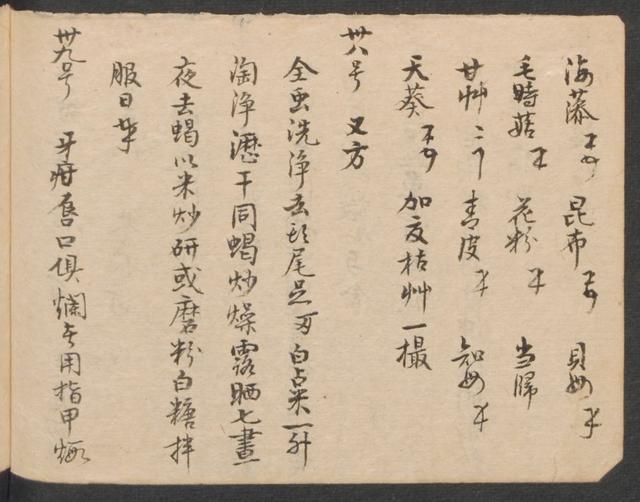 海藻 昆布 貝母
毛時菇 花粉 当歸
甘艸二 青皮 知母
天葵 加夏枯艸一撮
卅八号 又方
全虫洗浄去頭尾足 白占米一升
淘浄瀝干同蝎炒燥露晒七晝
夜去蝎以米炒研或磨粉白糖拌
服日
卅九号 牙疳唇口俱爛 用指甲煅